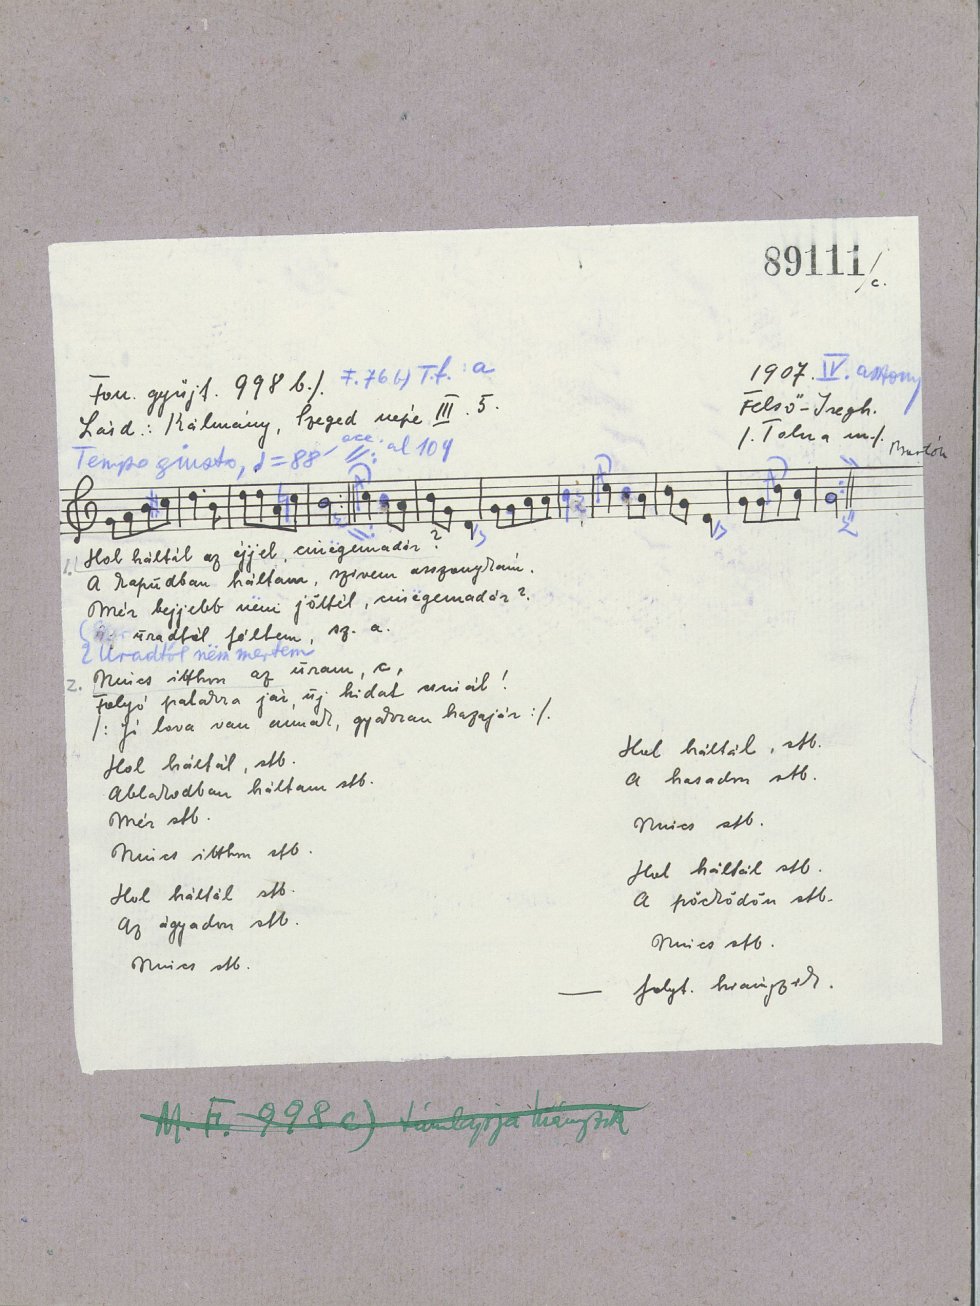 89111/c.
Fon. gyűjt. 998 b./. F.76b) T.f.: a
1907. IV. asszony
Lásd.: Kálmány, Szeged népe III. 5.
Felső-Iregh.
/. Tolna m./.
Bartók
Tempo giusto, ♩=88 acc. al 104
1. Hol háltál az éjjel, cinëgemadár?
A kapudban háltam, szivem asszonykám.
Mér bejjebb nëm jöttél, cinëgemadár?
uradtól féltem, sz. a.
2 Uradtól nëm mertem
2. Nincs itthon az uram, c.
Folyó patakra jár, új hidat csinál!
/: Jó lova van annak, gyakran hazajár :/.
Hol háltál, stb.
Ablakodban háltam stb.
Mér stb.
Nincs itthon stb.
Hol háltál stb.
Az ágyadon stb.
Nincs stb.
Hol háltál, stb.
A hasadon stb.
Nincs stb.
Hol háltál stb.
A pöcködön stb.
Nincs stb.
— folyt. hiányzik.
M. F. 998 c) támlapja hiányzik